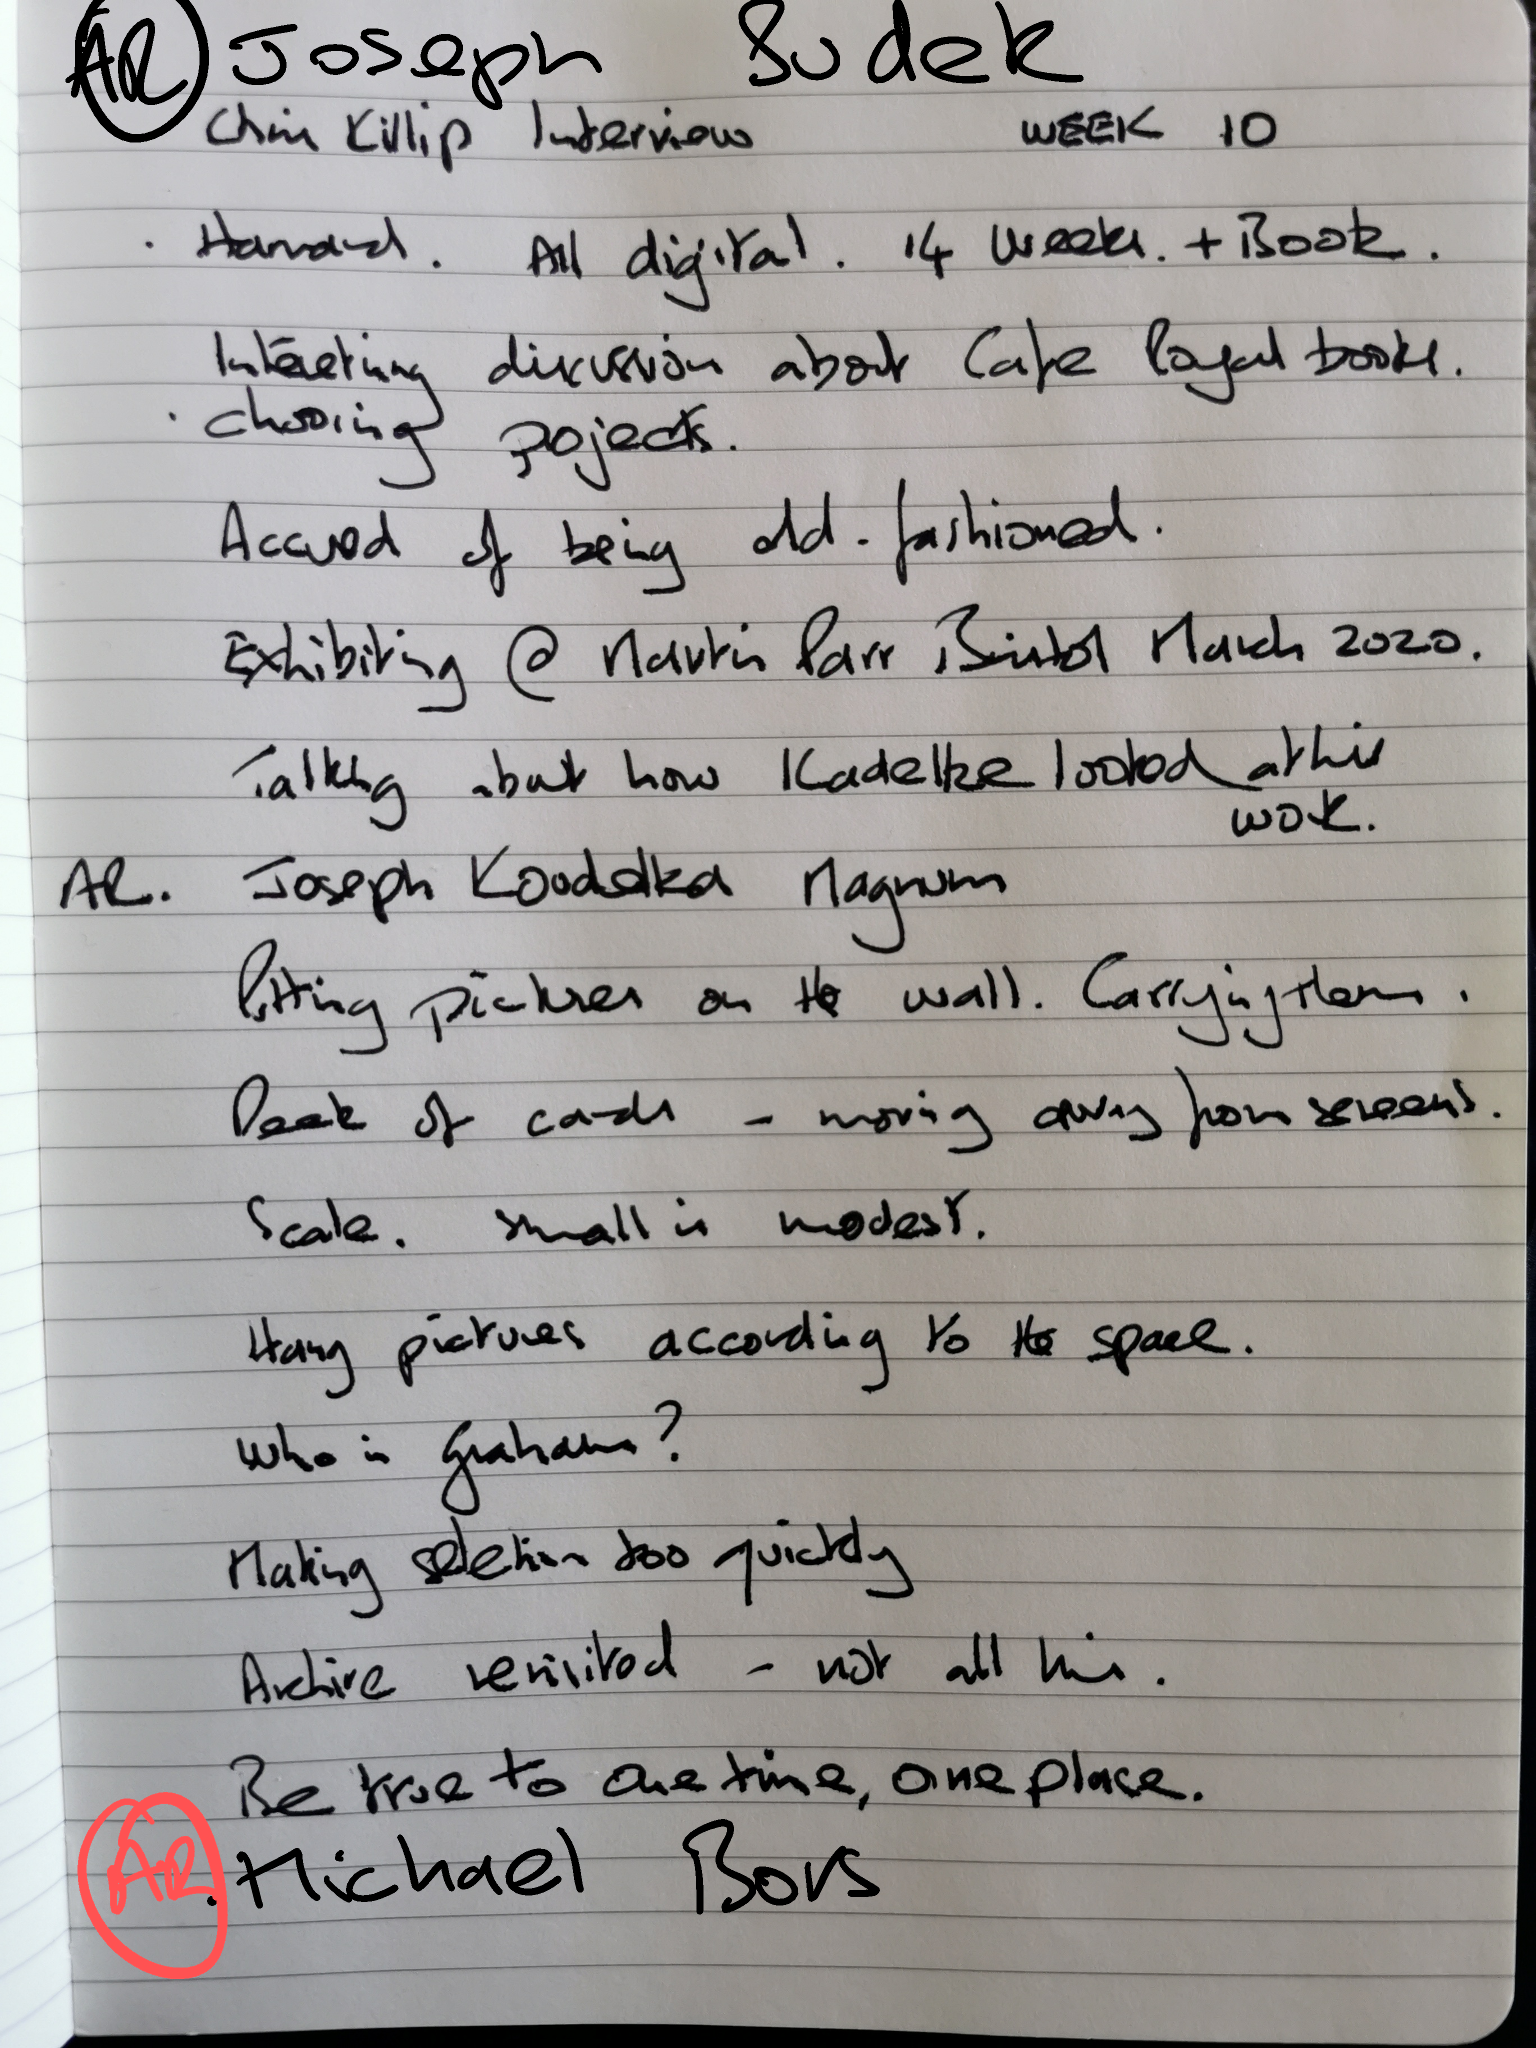 AR Joseph Sudek
Chris Killip Interview WEEK 10
. Harvard. All digital. 14 weeks. + Book.
Interesting discussion about Cafe Royal books.
. choosing pojects.
Accused of being old-fashioned.
Exhibiting @ Martin Parr Bristol March 2020.
Talking about how Kadelke looked at his
work.
AR. Joseph Koudelka Magnum
Putting pictures on the wall. Carrying them.
Deck of cards - moving away from screens.
Scale. small is modest.
Hang pictures according to the space.
Who is Graham?
Making seletion too quickly
Archive revisited - not all his.
Be true to one time, one place.
AR. Michael Bors